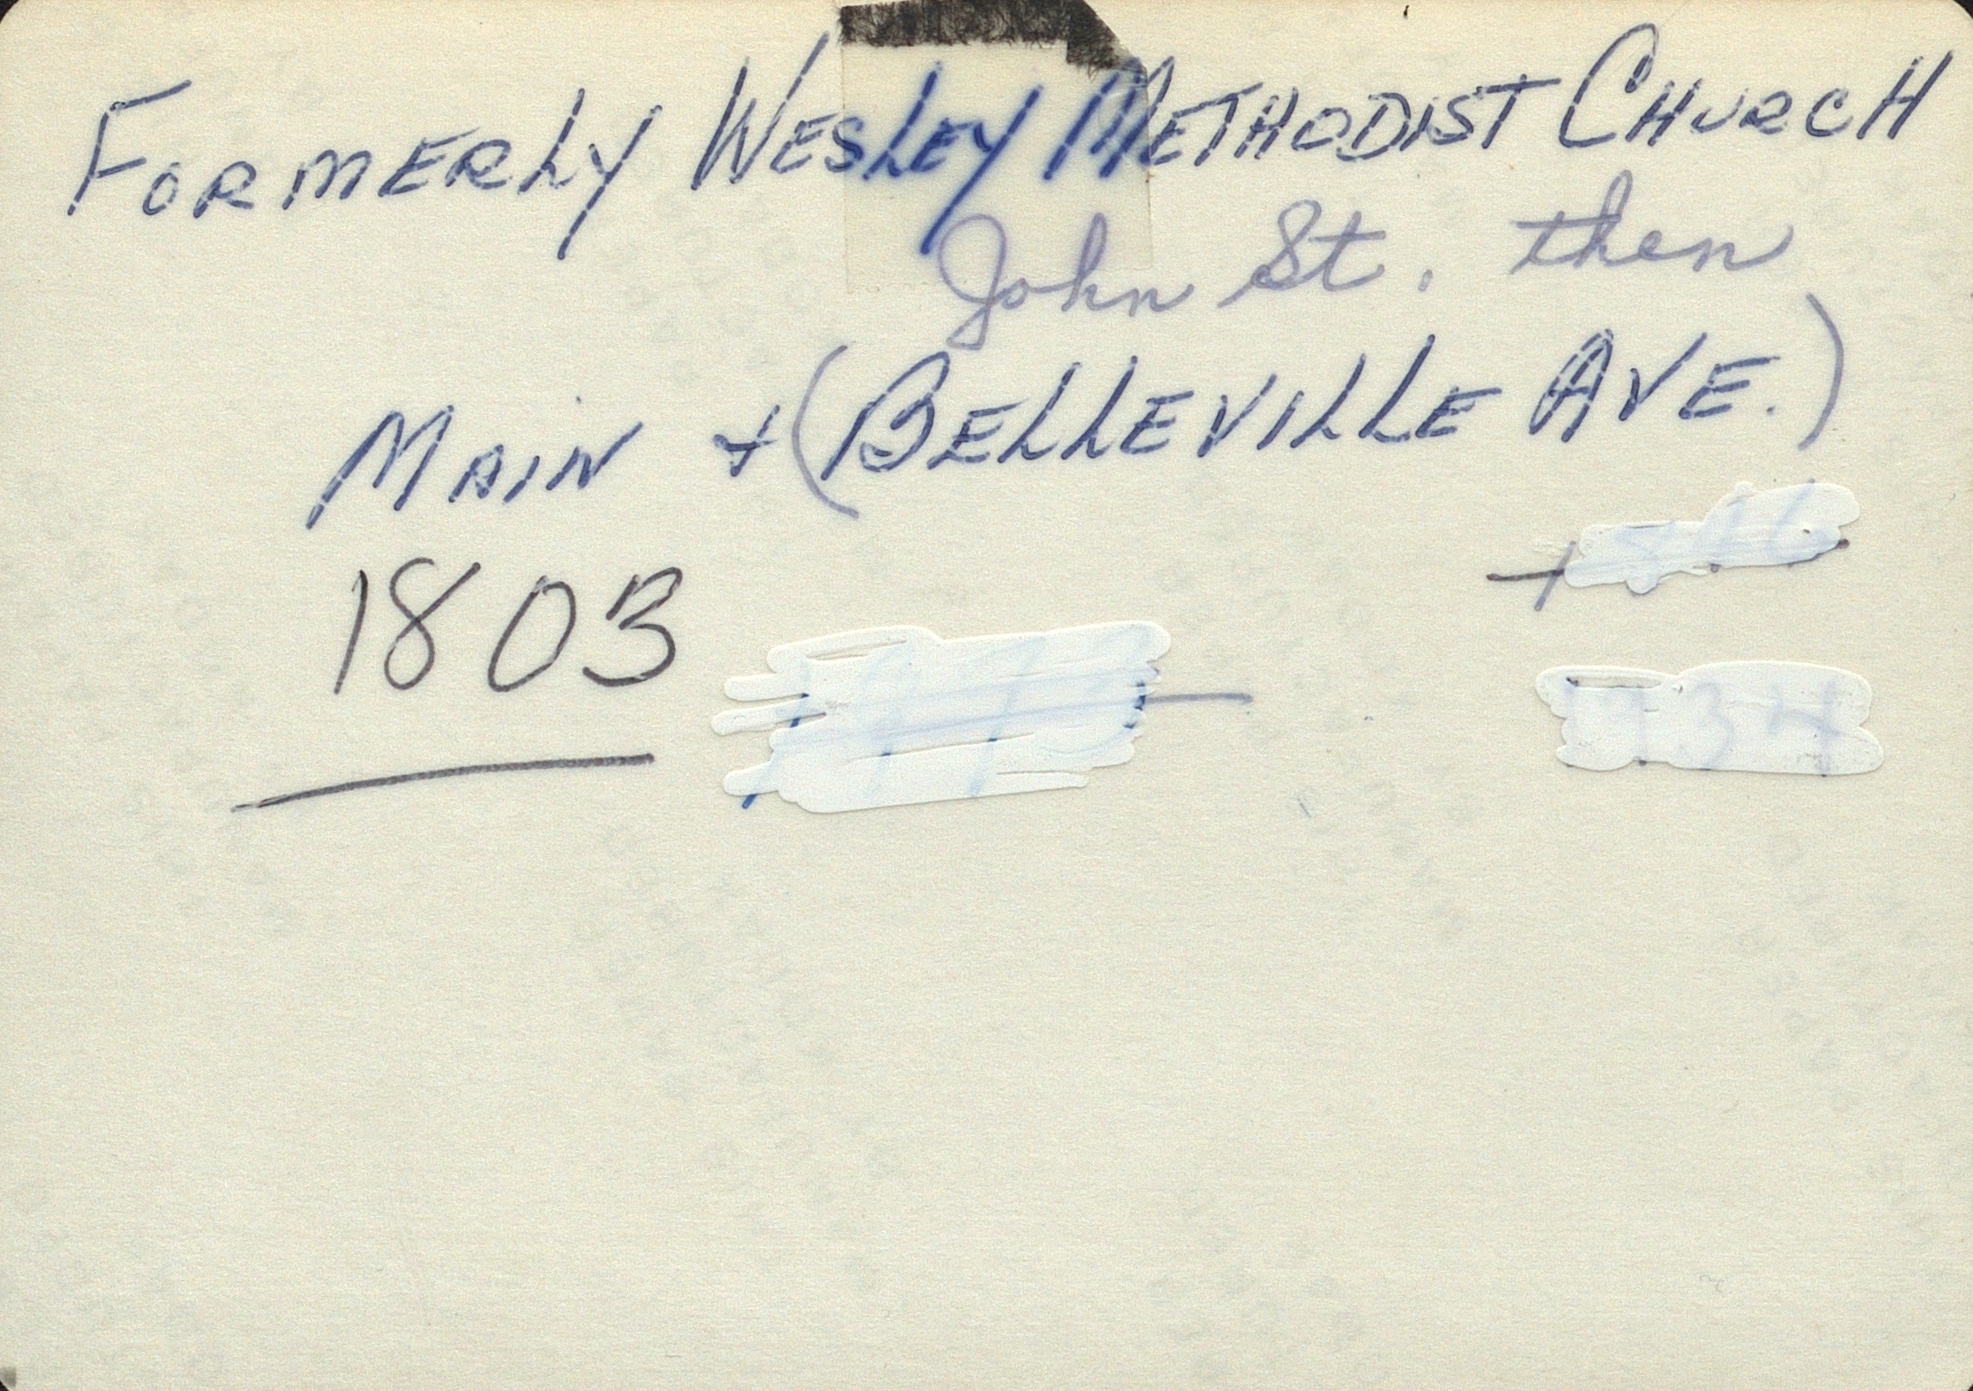 FORMERLY WESLEY METHODIST CHURCH
John St. then
MAIN + (BELLEVILLE AVE.)
1803